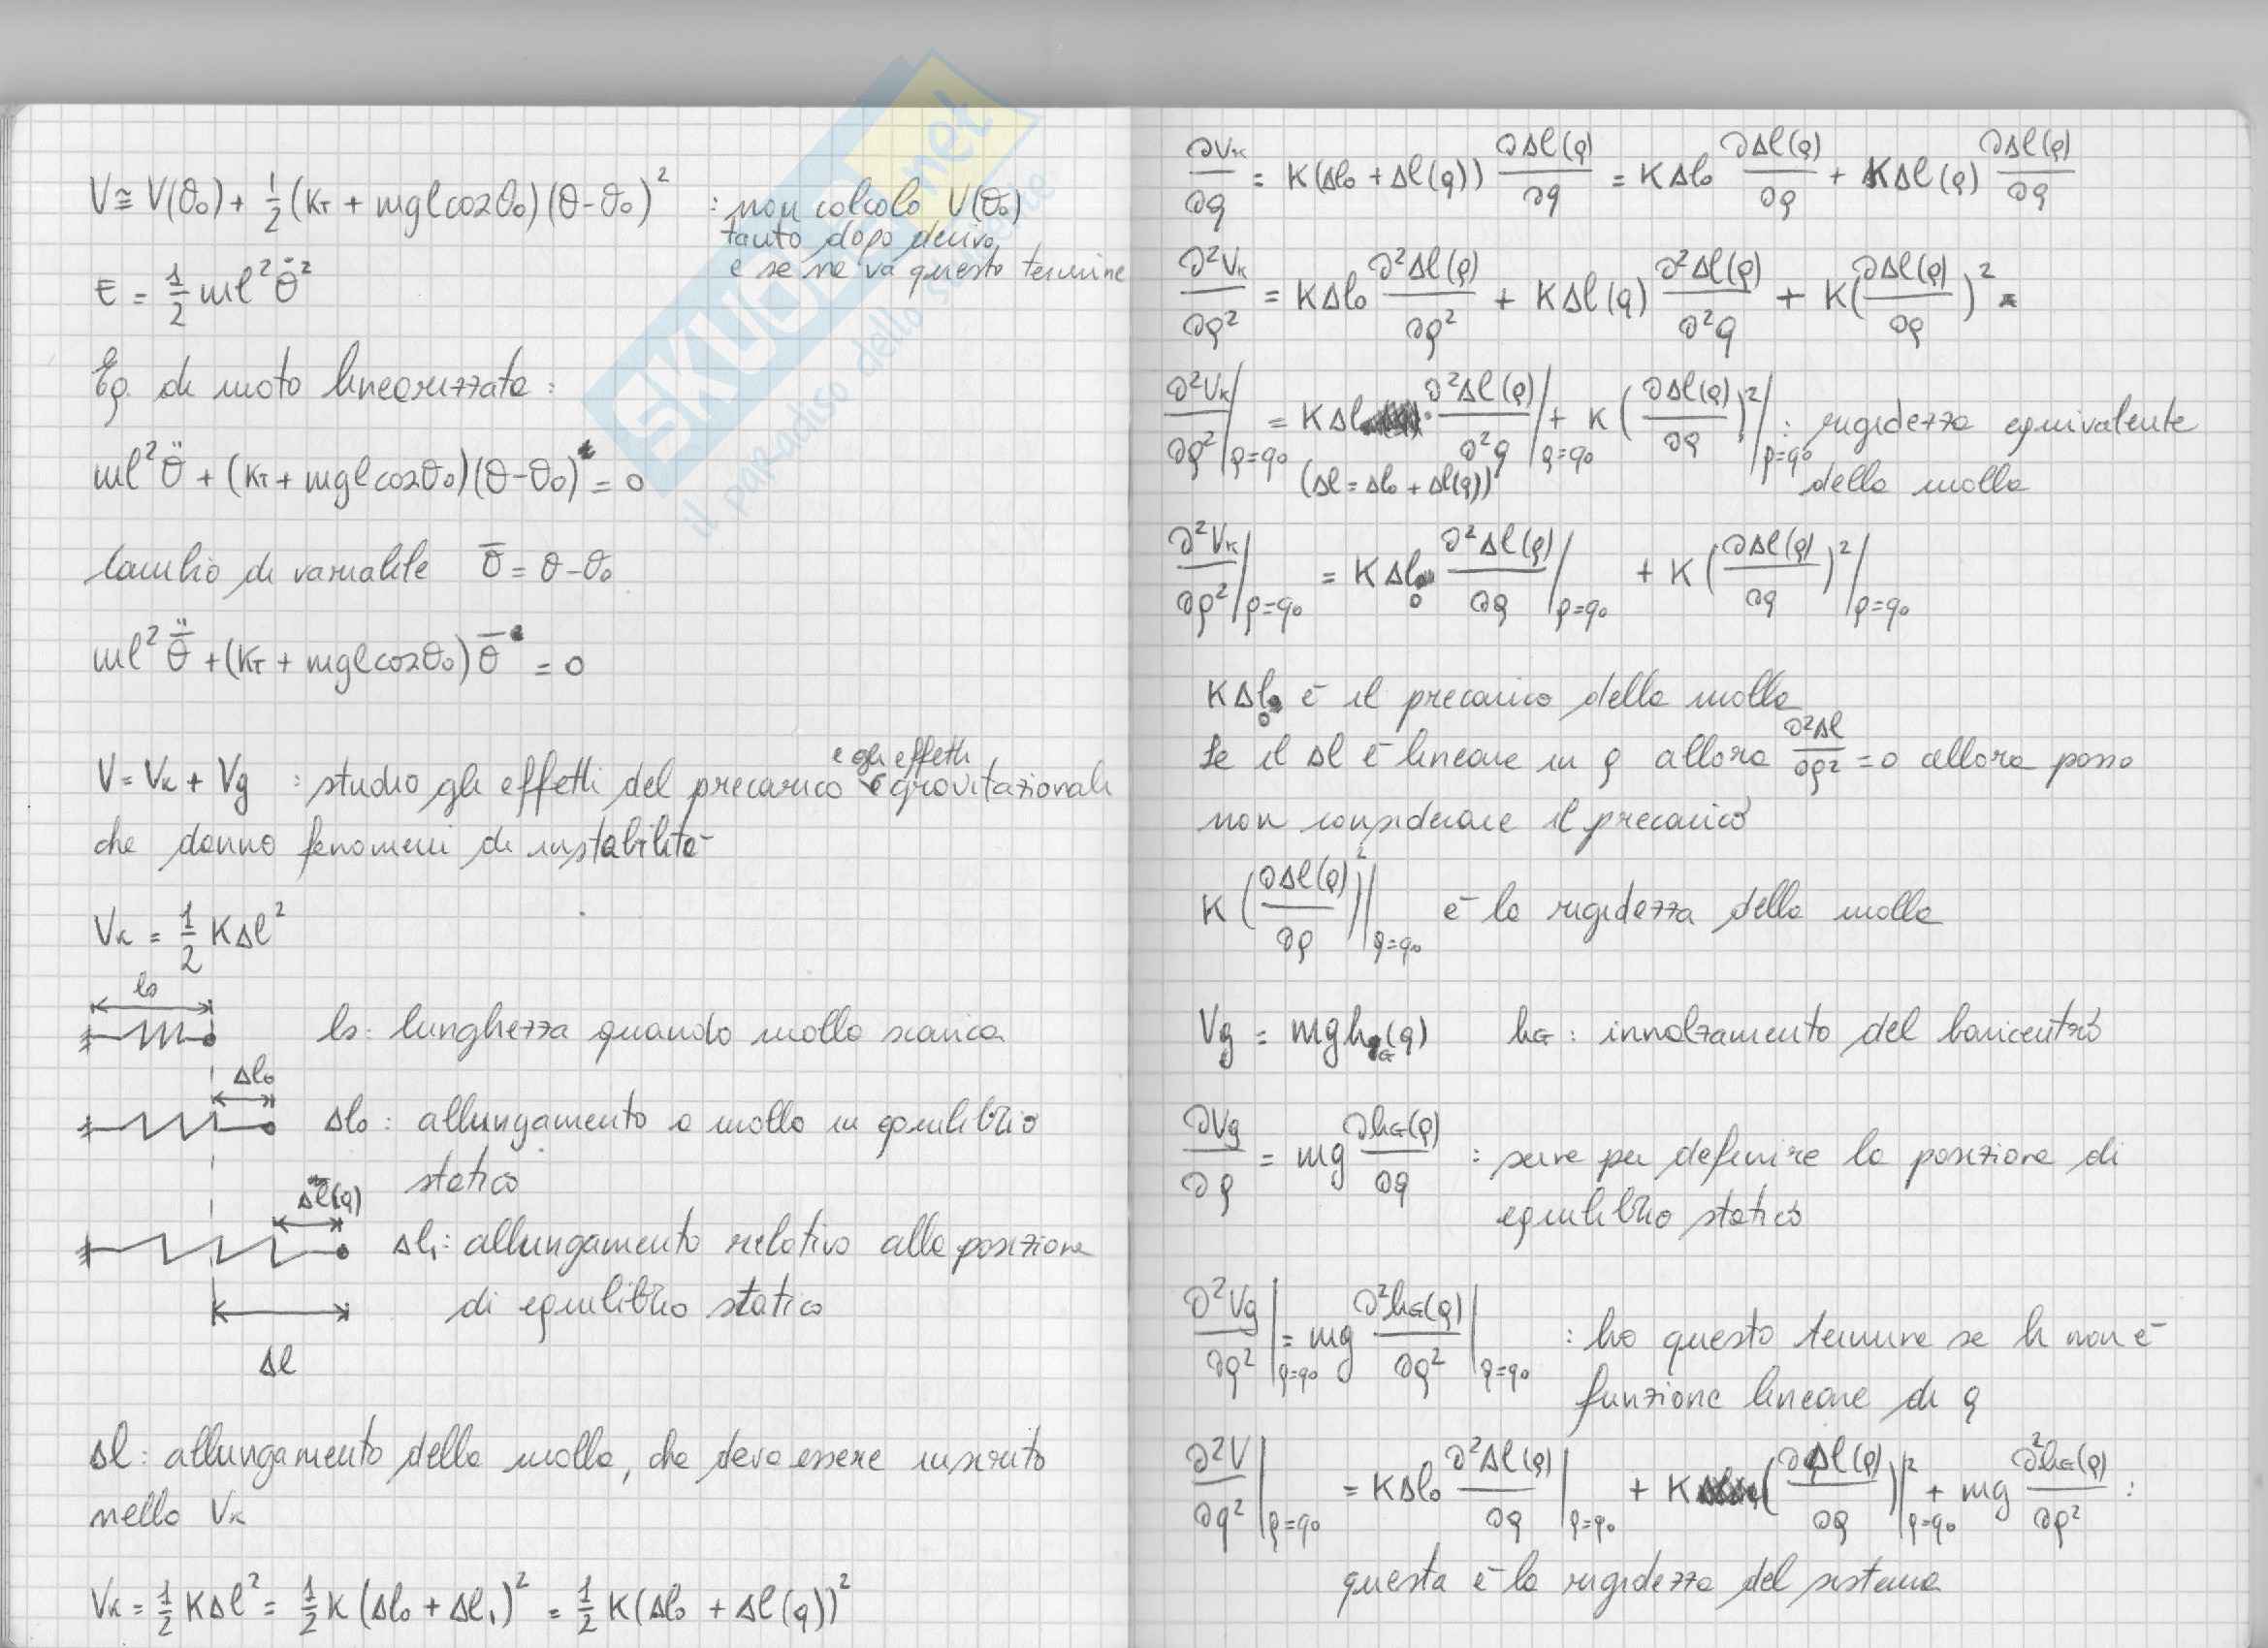 V ≅ V(θ₀) + 1/2 (K_T + mglcosθ₀)(θ-θ₀)² : non calcolo V(θ₀)
tanto dopo derivo
e se ne va questo termine
E = 1/2 ml²θ̇²
Eq. di moto linearizzata:
ml²θ̈ + (K_T + mglcosθ₀)(θ-θ₀) = 0
Cambio di variabile θ̄ = θ-θ₀
ml²θ̄̈ + (K_T + mglcosθ₀) θ̄ = 0
V = V_K + V_g : studio gli effetti del precarico e gli effetti gravitazionali
che danno fenomeni di instabilità
V_K = 1/2 KΔl²
l₀
ls: lunghezza quando molla scarica
Δl₀
Δl₀: allungamento a molla in equilibrio
statico
Δl(q)
Δl₁: allungamento relativo alla posizione
di equilibrio statico
Δl
Δl: allungamento della molla, che deve essere inserito
nella V_K
V_K = 1/2 KΔl² = 1/2 K(Δl₀ + Δl₁)² = 1/2 K(Δl₀ + Δl(q))²
∂V_K/∂q = K(Δl₀ + Δl(q)) ∂Δl(q)/∂q = KΔl₀ ∂Δl(q)/∂q + KΔl(q) ∂Δl(q)/∂q
∂²V_K/∂q² = KΔl₀ ∂²Δl(q)/∂q² + KΔl(q) ∂²Δl(q)/∂²q + K(∂Δl(q)/∂q)²
∂²V_K/∂q²|q=q₀ = KΔl · ∂²Δl(q)/∂²q|q=q₀ + K(∂Δl(q)/∂q)²|q=q₀ : rigidezza equivalente
(Δl = Δl₀ + Δl(q)) della molla
∂²V_K/∂q²|q=q₀ = KΔl₀ ∂²Δl(q)/∂q|q=q₀ + K(∂Δl(q)/∂q)²|q=q₀
KΔl₀ è il precarico della molla
Se il Δl è lineare in q allora ∂²Δl/∂q² = 0 allora posso
non considerare il precarico
K(∂Δl(q)/∂q)²|q=q₀ è la rigidezza della molla
V_g = mgh_G(q) h_G: innalzamento del baricentro
∂V_g/∂q = mg ∂h_G(q)/∂q : serve per definire la posizione di
equilibrio statico
∂²V_g/∂q²|q=q₀ = mg ∂²h_G(q)/∂q²|q=q₀ : ho questo termine se h non è
funzione lineare di q
∂²V/∂q²|q=q₀ = KΔl₀ ∂²Δl(q)/∂q|q=q₀ + K(∂Δl(q)/∂q)²|q=q₀ + mg ∂²h_G(q)/∂q² :
questa è la rigidezza del sistema
SKUOLA.net
il paradiso dello studente